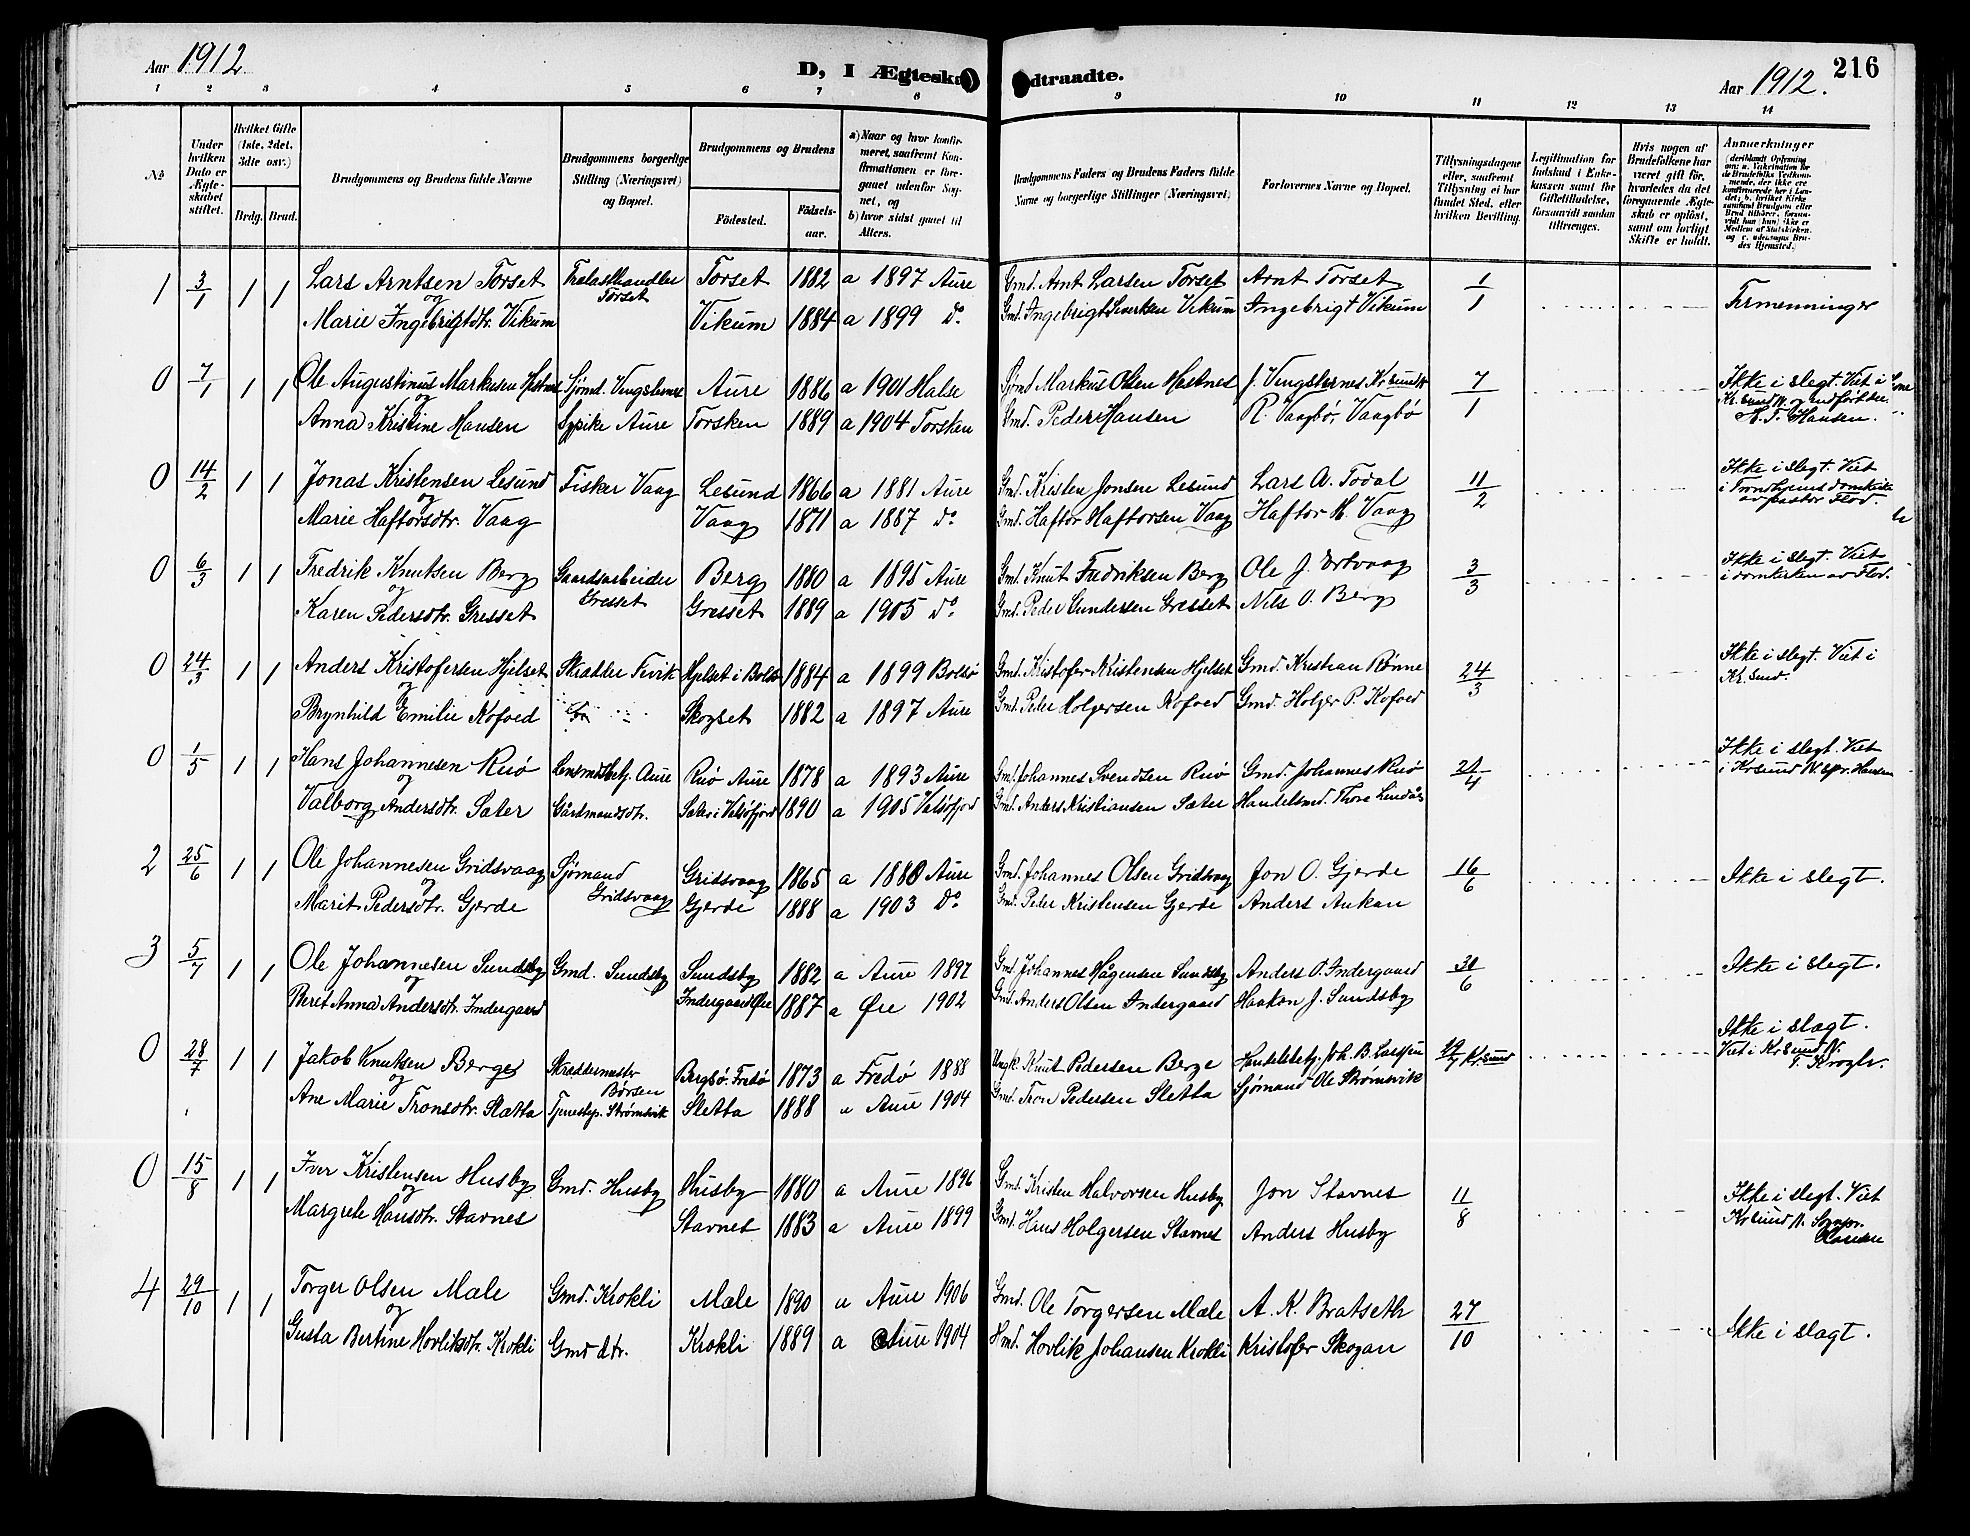 Aar 1912. D, I Ægteska dtraadte. Aar 1912. 216
1 2 3 4 5 6 7 8 9 10 11 12 13 14
No
Under hvilken Dato er Ægteskabet stiftet.
Hvilket Gifte (1ste, 2det, 3dte osv.)
Brdg. Brud.
Brudgommens og Brudens fulde Navne
Brudgommens borgerlige Stilling (Næringsvei) og Bopæl.
Brudgommens og Brudens
Födested. Födsels-aar.
a) Naar og hvor konfirmeret, saafremt Konfirmationen er foregaaet udenfor Sognet, og
b) hvor sidst gaaet til Alters.
Brudgommens Faders og Brudens Faders fulde Navne og borgerlige Stillinger (Næringsvei)
Forlovernes Navne og Bopæl.
Tillysningsdagene eller, saafremt Tillysning ei har fundet Sted, efter hvilken Bevilling.
Legitimation for Indskud i Enkekassen samt for Giftetilladelse, forsaavidt saadan tiltrænges.
Hvis nogen af Brudefolkene har været gift för, hvorledes da det foregaaende Ægteskab er oplöst, samt om lovligt Skifte er holdt.
Anmærkninger
1 3/1 1 1 Lars Arntsen Torset Torset 1882 a 1897 Aure Gmd. Arnt Larsen Torset Arnt Torset 1/1 Firmenninger
og Torset
Marie Ingebrigtdtr. Vikum Vikum 1884 a 1899 Do. Gmd. Ingebrigt Sivertsen Vikum Ingebrigt Vikum
0 7/1 1 1 Ole Augustinus Markusen Hestnes Sjömd. Vingsternes Aure 1886 a 1901 Halse Sjömd Markus Olsen Hestnes J. Vingsternes Krsund 7/1 Ikke i slegt. Viet i
og Kr.sund N.
Anna Kristine Hansen Sypike Aure Torsken 1889 a 1904 Torsken Gmd. Peder Hansen R. Vaagbö, Vaagbö Hansen.
0 14/2 1 1 Jonas Kristensen Lesund Fisker Vaag Lesund 1866 a 1881 Aure Gmd. Kristen Jonsen Lesund Lars A. Todal 11/2 Ikke i slegt. Viet
og i Trondhjems domkirke
Marie Haftorsdtr. Vaag Vaag 1871 a 1887 Do. Gmd. Haftor Haftorsen Vaag Haftor H. Vaag av pastor Flod.
0 6/3 1 1 Fredrik Knutsen Berg Gaardsarbeider Berg 1880 a 1895 Aure Gmd. Knut Fredriksen Berg Ole J. Ertvaag 3/3 Ikke i slegt. Viet
og Gresset i domkirken av Flod.
Karen Pedersdtr. Gresset Gresset 1889 a 1905 Do. Gmd. Peder Gundersen Gresset Nils O. Berg
0 24/3 1 1 Anders Kristofersen Hjelset Skrædder Tevik Hjelset i Bolsö 1884 a 1899 Bolsö Gmd. Kristofer Kristensen Hjelset Gmd. Kristian Rønne 24/3 Ikke i slegt. Viet i
og Kr.sund.
Brynhild Emilie Kofoed Skogset 1882 a 1897 Aure Gmd. Peder Holgersen Kofoed Gmd. Holger P. Kofoed
0 1/5 1 1 Hans Johannesen Ruø Lensmdsbetj. Aure Ruø Aure 1878 a 1893 Aure Gmd. Johannes Svendsen Ruø Gmd. Johannes Ruø 21/4 Ikke i slegt. Viet
og i Krsund N. spr. Hansen
Valborg Andersdtr. Sæter Gårdmandsdtr. Sæter i Valsöfjord 1890 a 1905 Valsöfjord Gmd. Anders Kristiansen Sæter Handelsmd. Thore Lindås
2 25/6 1 1 Ole Johannesen Gridsvaag Sjømand Gridsvaag 1865 a 1880 Aure Gmd. Johannes Olsen Gridsvaag Jon O. Gjerde 16/6 Ikke i slegt.
og Gridsvaag
Marit Pedersdtr. Gjerde Gjerde 1888 a 1903 Do. Gmd. Peder Kristensen Gjerde Anders Aukan
3 5/7 1 1 Ole Johannesen Sundsby Gmd. Sundsby Sundsby 1882 a Aure 1897 Gmd. Johannes Hågensen Sundsby Anders O. Indergaard 30/6 Ikke i slegt.
og
Beret Anna Andersdtr. Indergaard Indergaard Øre 1887 a Øre 1902 Gmd. Anders Olsen Indergaard Haakon J. Sundsby
0 28/7 1 1 Jakob Knutsen Berge Skræddermester Bergsö. Fredö 1873 a Fredö 1888 Ungk. Knut Pedersen Berge Handelsbetj. Joh. B. Larssen 19/7 Krsund Ikke i slagt.
og Børsen Viet i Krsund N.
Ane Marie Tronsdtr. Slætta Tjenestep. Strømsvik Sletta 1888 a Aure 1904 Gmd. Tron Pedersen Sletta Sjømand Ole Strømsvik Krogh.
0 15/8 1 1 Iver Kristensen Husby Gmd. Husby Husby 1880 a Aure 1896 Gmd. Kristen Halvorsen Husby Jon Stavnes 11/8 Ikke i slegt. Viet
og Krsund N. Sognpr.
Margrete Hansdtr. Stavnes Stavnes 1883 a Aure 1899 Gmd. Hans Holgersen Stavnes Anders Husby Hansen
4 29/10 1 1 Torger Olsen Mæle Gmd. Krokli Mæle 1890 a Aure 1906 Gmd. Ole Torgersen Mæle A. K. Bratseth 27/10
og
Gusta Bertine Hovliksdtr. Krokli Gmd dtr. Krokli 1889 a Aure 1904 Hmd. Hovlik Johansen Krokli Kristofer Skogan Ikke i slagt.